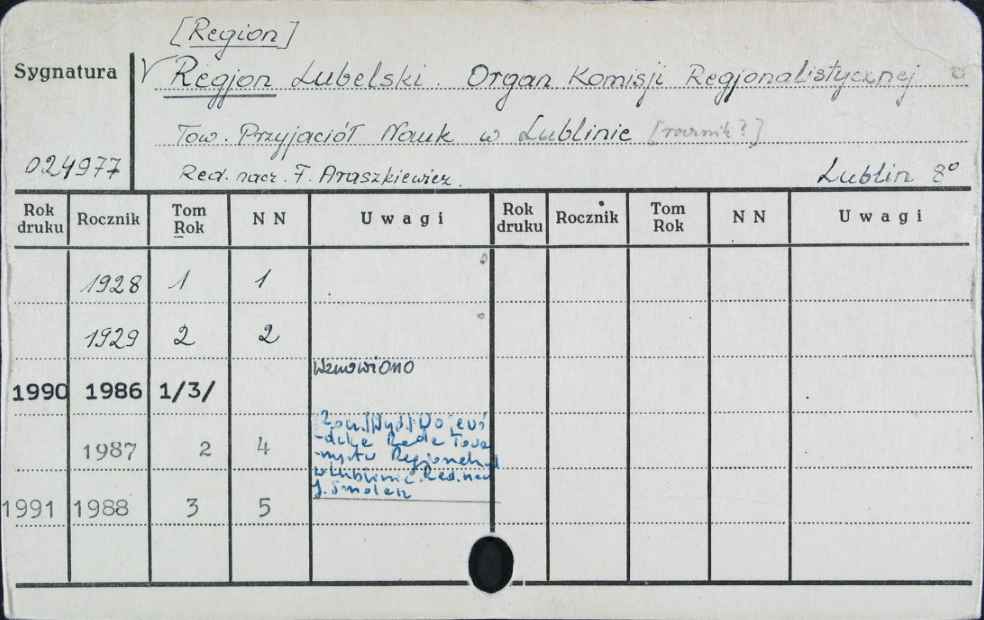 [Region]
Sygnatura
√ Regjon Lubelski. Organ Komisji Regjonalistycznej
Tow. Przyjaciół Nauk w Lublinie [rocznik?]
024977
Red. nacz. F. Araszkiewicz.
Lublin 8°
Rok druku Rocznik Tom Rok NN Uwagi Rok druku Rocznik Tom Rok NN Uwagi
1928 1 1
1929 2 2
Wznowiono
1990 1986 1/3/
1987 2 4
-dzka Rada Towa
-rzystw Regionaln.
w Lublinie. Red. nacz
J. Smolarz
1991 1988 3 5